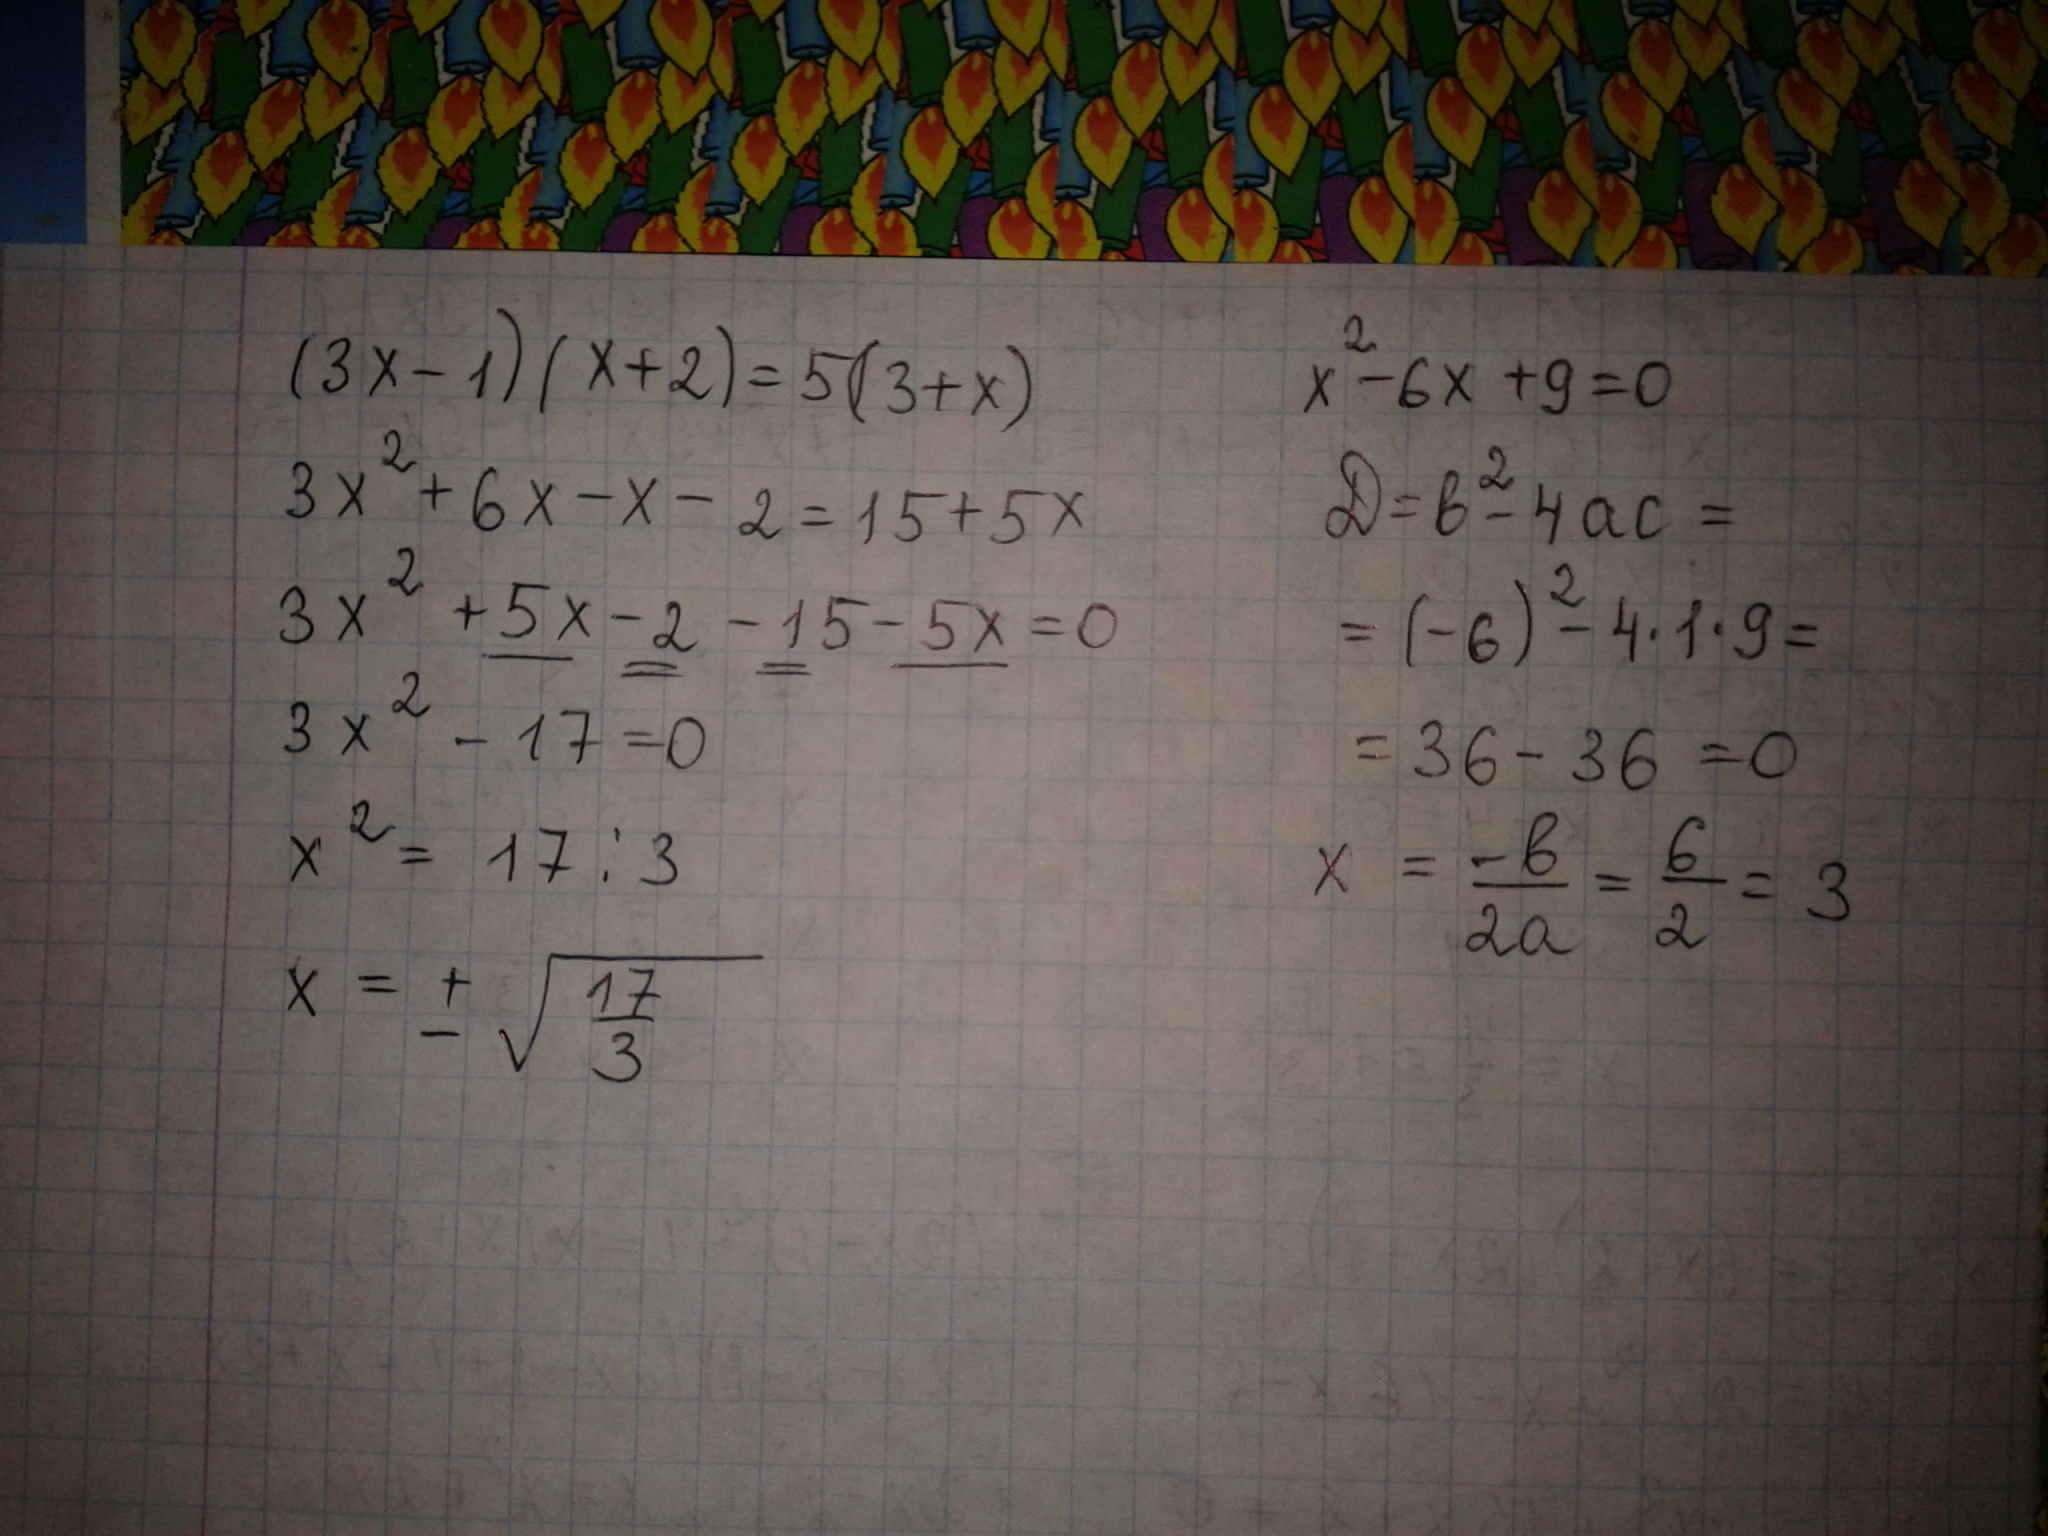 (3x-1)(x+2)=5(3+x)
3x²+6x-x-2=15+5x
3x²+5x-2-15-5x=0
3x²-17=0
x²=17:3
x=±√(17/3)
x²-6x+9=0
D=b²-4ac=
=(-6)²-4·1·9=
=36-36=0
x=-b/2a=6/2=3